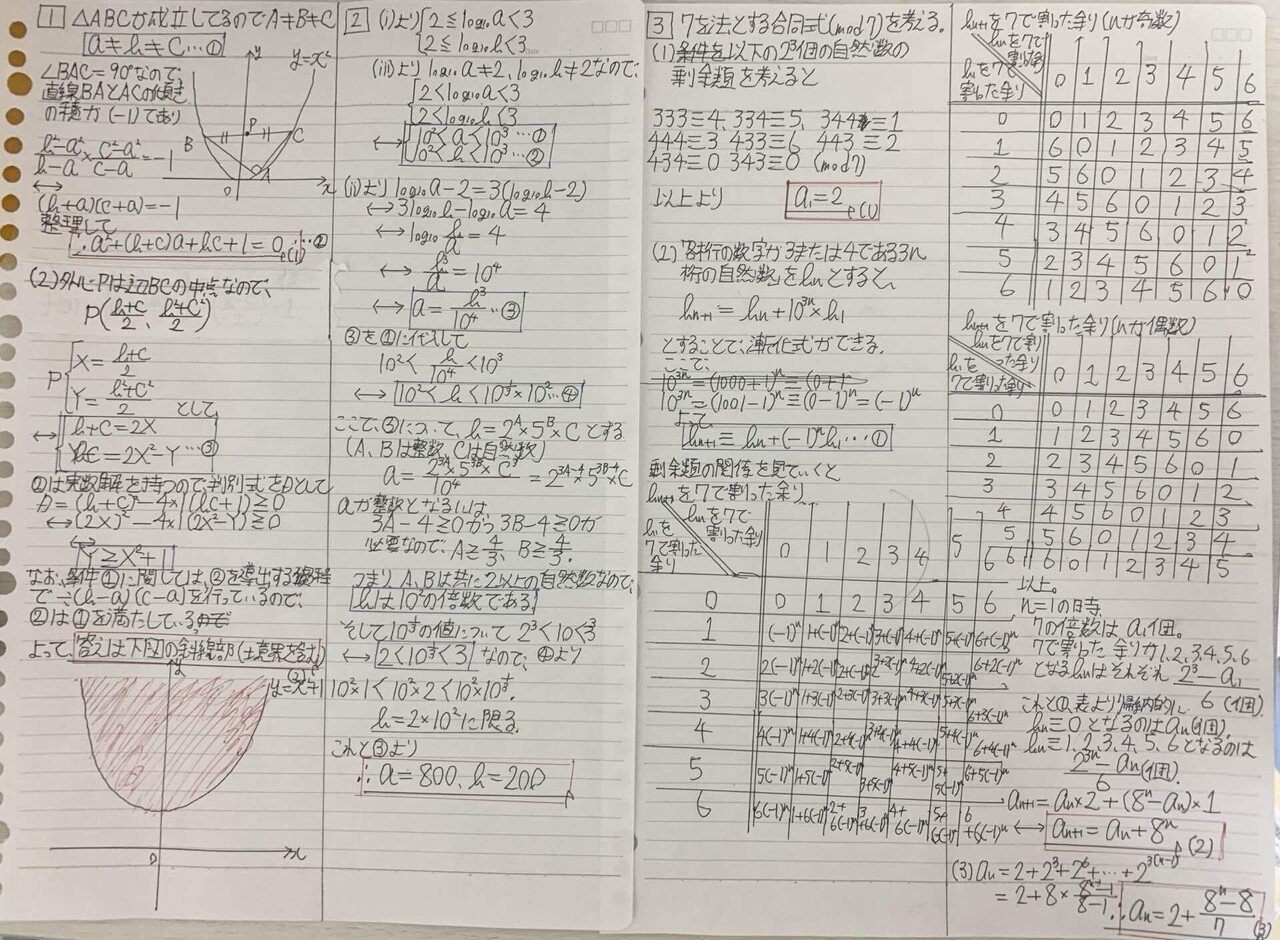 1 △ABCが成立してるのでA≠B≠C
a≠b≠c…①
∠BAC=90°なので、
直線BAとACの傾き
の積が(-1)であり
b²-a²/b-a × c²-a²/c-a = -1
↔
(b+a)(c+a)=-1
整理して
∴a²+(b+c)a+bc+1=0 …②
(1)
y
y=x²
B
P
C
A
O
x
(2)外心Pは辺BCの中点なので、
P(b+c/2, b²+c²/2)
P{X=b+c/2
Y=b²+c²/2 として
↔{b+c=2X
bc=2X²-Y…③
②は実数解を持つので判別式をDとして
D=(b+c)²-4×1(bc+1)≧0
↔(2X)²-4×1(2X²-Y)≧0
↔
Y≧X²+1
なお、条件①に関しては、②を導出する過程
で÷(b-a)(c-a)を行っているので、
②は①を満たしている
よって、答えは下図の斜線部(境界を含む)
(2)
y
y=x²+1
O
x
2 (i)より{2≦log₁₀a<3
2≦log₁₀b<3
(iii)より log₁₀a≠2、log₁₀b≠2なので、
{2<log₁₀a<3
2<log₁₀b<3
↔{10²<a<10³…①
10²<b<10³…②
(ii)より log₁₀a-2=3(log₁₀b-2)
↔3log₁₀b-log₁₀a=4
↔log₁₀b³/a=4
↔b³/a=10⁴
↔a=b³/10⁴…③
③を①に代入して
10²<b³/10⁴<10³
↔10²<b<10^⅓×10²…④
ここで、③について、b=2^A×5^B×Cとする
(A、Bは整数、Cは自然数)
a=2^3A×5^3B×C³/10⁴=2^3A-4×5^3B-4×C
aが整数となるには
3A-4≧0かつ3B-4≧0が
必要なので、A≧4/3、B≧4/3.
つまりA、Bは共に2以上の自然数なので、
bは10²の倍数である
そして10^⅓の値について 2³<10<3³
↔2<10^⅓<3 なので、④より
10²×1<10²×2<10²×10^⅓.
b=2×10²に限る.
これと③より
∴a=800、b=200
3 7を法とする合同式(mod7)を考える。
(1)条件を以下の2³個の自然数の
剰余類を考えると
333≡4、334≡5、344≡1
444≡3 433≡6 443≡2
434≡0 343≡0 (mod7)
以上より a₁=2
(1)
(2)「各桁の数字が3または4である3n
桁の自然数」をbnとすると、
bn+1=bn+10^3n×b₁
とすることで、漸化式ができる.
ここで、
10^3n=(1000+1)^n≡(0+1)^n
10^3n=(1001-1)^n≡(0-1)^n=(-1)^n
よって、
bn+1≡bn+(-1)^n b₁…①
剰余類の関係を見ていくと
bn+1を7で割った余り
bnを7で割った余り
b₁を7で割った余り
0 1 2 3 4 5 6
0 0 1 2 3 4 5 6
1 (-1)^n 1+(-1)^n 2+(-1)^n 3+(-1)^n 4+(-1)^n 5+(-1)^n 6+(-1)^n
2 2(-1)^n 1+2(-1)^n 2+2(-1)^n 4+2(-1)^n 6+2(-1)^n
3 3(-1)^n 1+3(-1)^n 2+3(-1)^n 3+3(-1)^n 6+3(-1)^n
4 4(-1)^n 1+4(-1)^n 2+4(-1)^n 3+4(-1)^n 4+4(-1)^n 5+4(-1)^n 6+4(-1)^n
5 5(-1)^n 1+5(-1)^n 2+5(-1)^n 3+5(-1)^n 4+5(-1)^n 5+5(-1)^n 6+5(-1)^n
6 6(-1)^n 1+6(-1)^n 2+6(-1)^n 3+6(-1)^n 4+6(-1)^n 5+6(-1)^n 6+6(-1)^n
bn+1を7で割った余り(nが奇数)
bnを7で割った余り
b₁を7で割った余り
0 1 2 3 4 5 6
0 0 1 2 3 4 5 6
1 6 0 1 2 3 4 5
2 5 6 0 1 2 3 4
3 4 5 6 0 1 2 3
4 3 4 5 6 0 1 2
5 2 3 4 5 6 0 1
6 1 2 3 4 5 6 0
bn+1を7で割った余り(nが偶数)
bnを7で割った余り
b₁を7で割った余り
0 1 2 3 4 5 6
0 0 1 2 3 4 5 6
1 1 2 3 4 5 6 0
2 2 3 4 5 6 0 1
3 3 4 5 6 0 1 2
4 4 5 6 0 1 2 3
5 5 6 0 1 2 3 4
6 6 0 1 2 3 4 5
以上.
n=1の時
7の倍数はa₁個。
7で割った余りが1、2、3、4、5、6
となるb₁はそれぞれ 2³-a₁/6(個).
これと①、表より帰納的に
bn≡0となるのはan(個).
bn≡1、2、3、4、5、6となるのは
2^3n-an/6(個).
an+1=an×2+(8^n-an)×1
↔an+1=an+8^n
(2)
(3)an=2+2³+2⁶+…+2^3(n-1)
=2+8×8^n-1-1/8-1
∴an=2+8^n-8/7
(3)